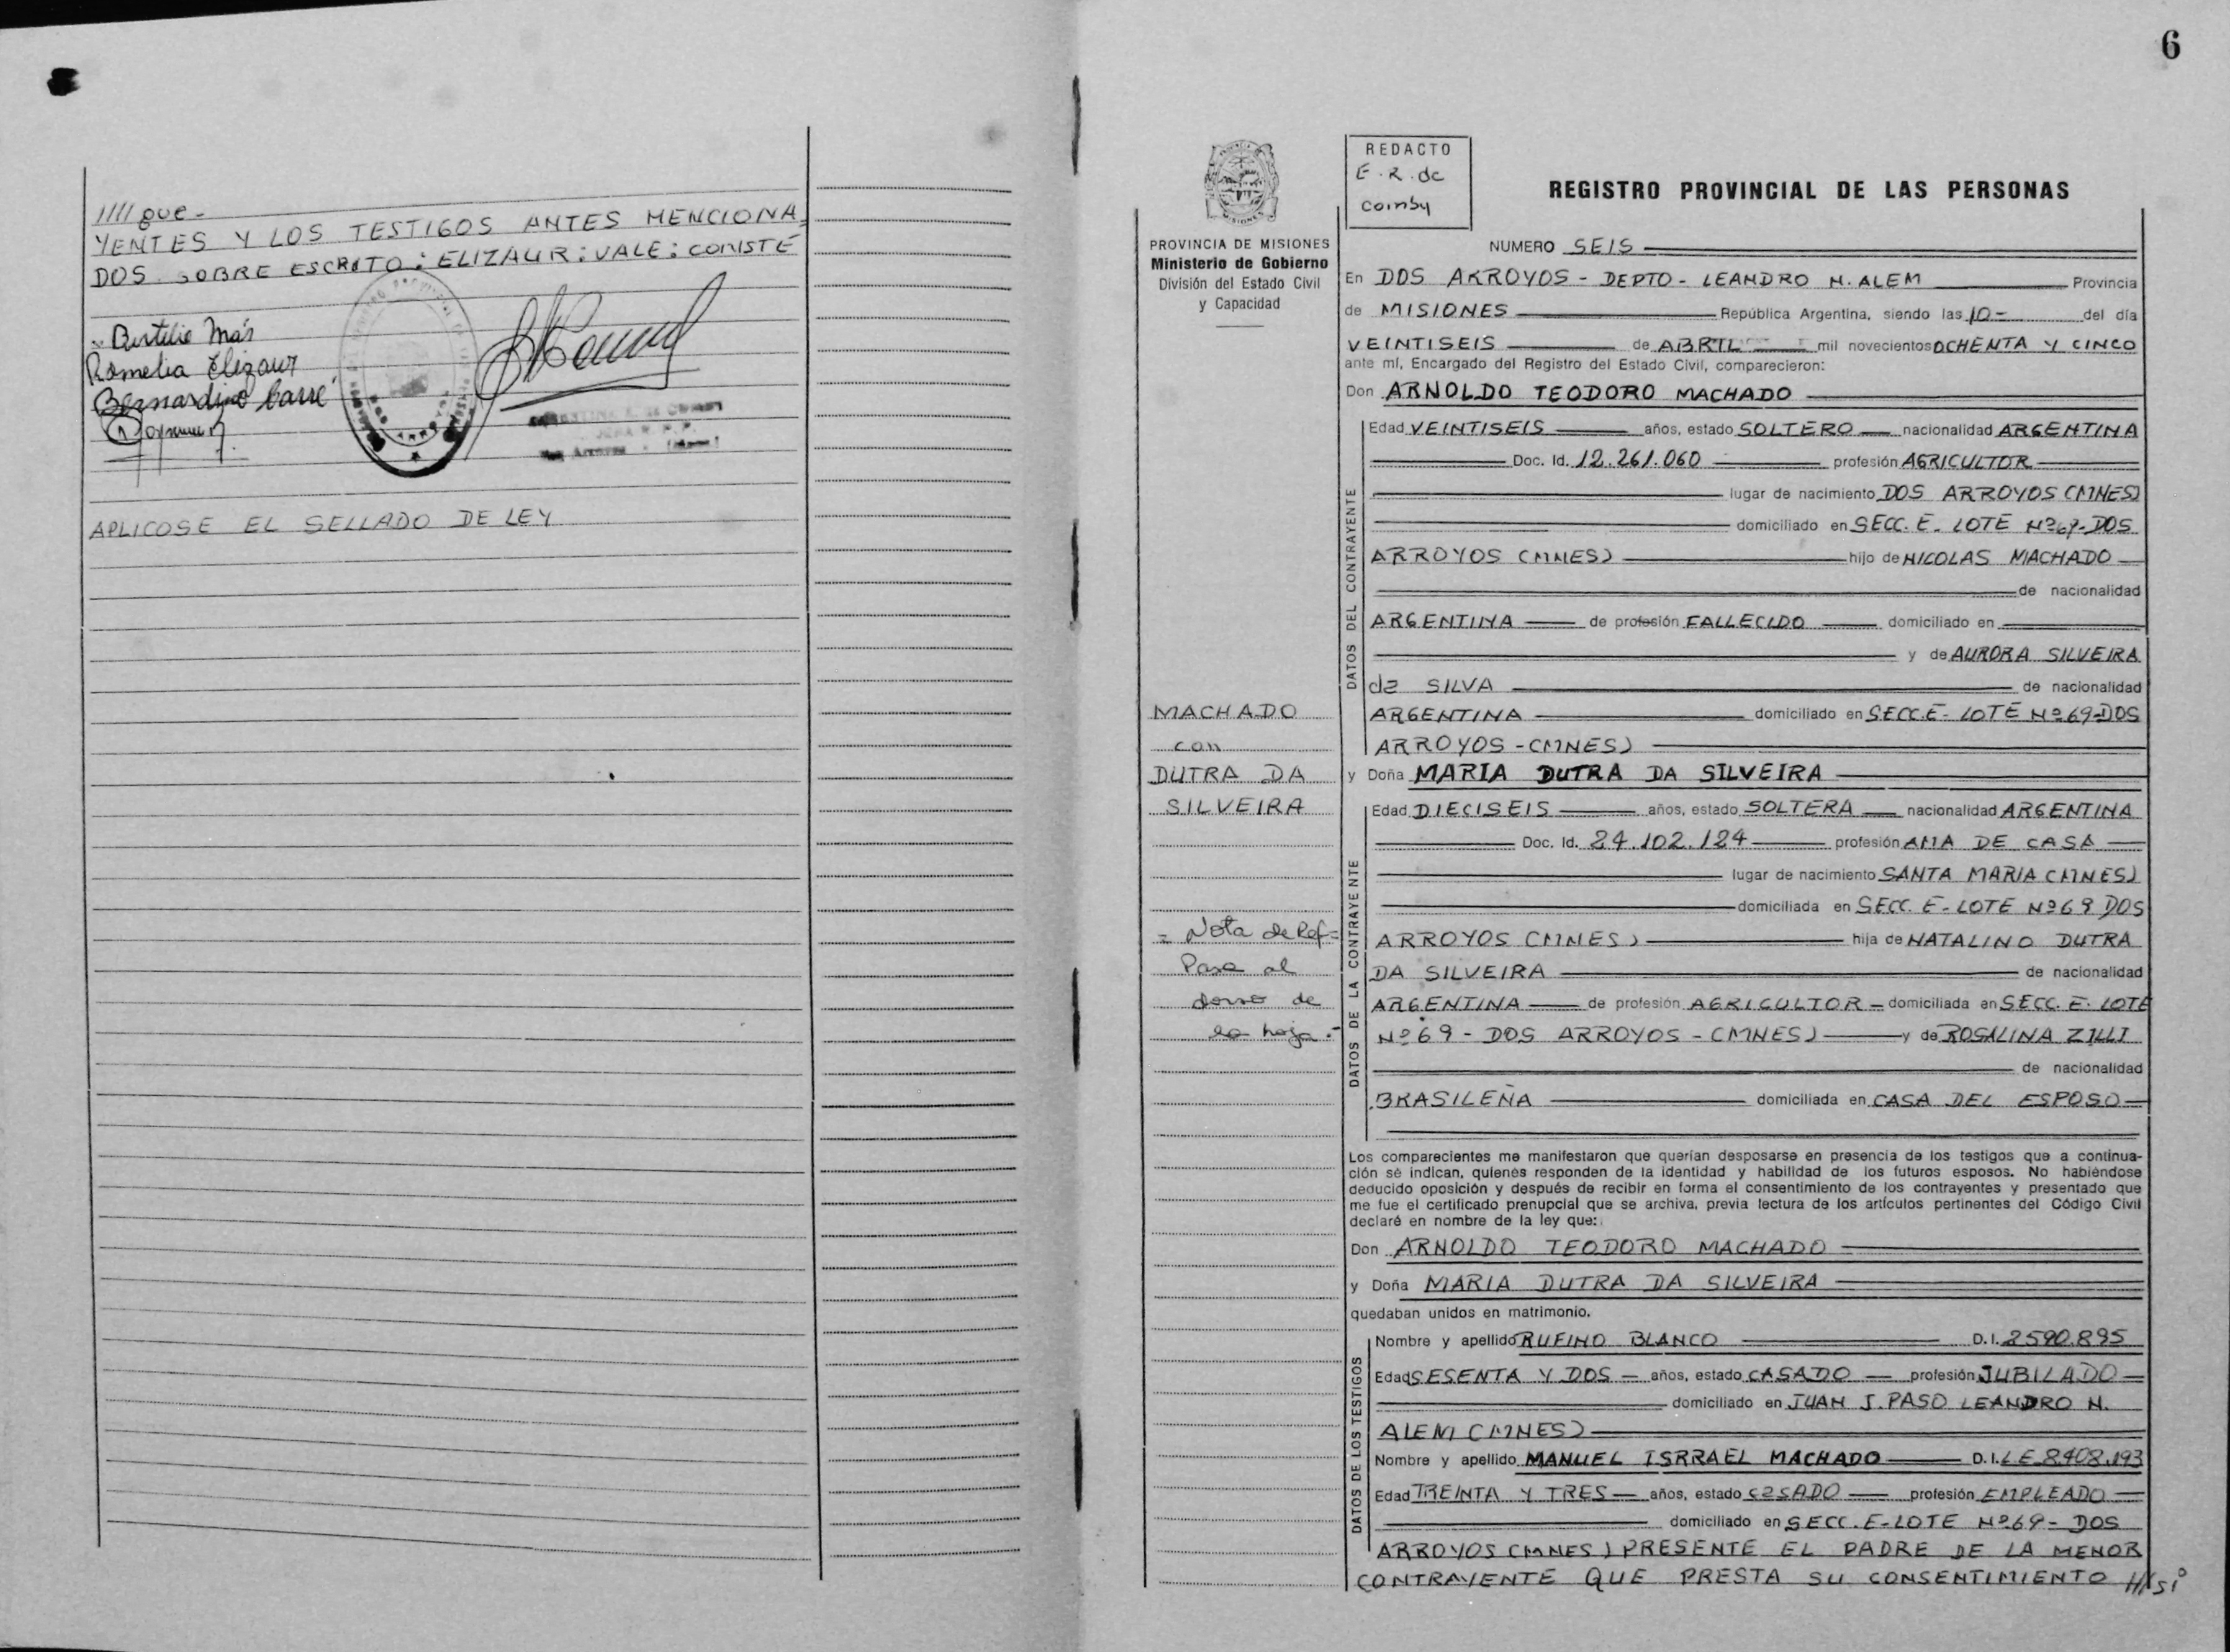 //// que-
YENTES Y LOS TESTIGOS ANTES MENCIONA
DOS. SOBRE ESCRITO: ELIZAUR: VALE: CONSTE
Romelia Elizaur
Bernardino
APLICOSE EL SELLADO DE LEY
6
REDACTO
E.R.de
comby
REGISTRO PROVINCIAL DE LAS PERSONAS
PROVINCIA DE MISIONES
Ministerio de Gobierno
División del Estado Civil
y Capacidad
NUMERO SEIS
En DOS ARROYOS - DEPTO - LEANDRO N. ALEM Provincia
de MISIONES República Argentina, siendo las 10- del día
VEINTISEIS de ABRIL mil novecientos OCHENTA Y CINCO
ante mí, Encargado del Registro del Estado Civil, comparecieron:
Don ARNOLDO TEODORO MACHADO
DATOS DEL CONTRAYENTE
Edad VEINTISEIS años, estado SOLTERO nacionalidad ARGENTINA
Doc. Id. 12.261.060 profesión AGRICULTOR
lugar de nacimiento DOS ARROYOS (MNES)
domiciliado en SECC. E- LOTE Nº69-DOS
ARROYOS (MNES) hijo de NICOLAS MACHADO
de nacionalidad
ARGENTINA de profesión FALLECIDO domiciliado en
y de AURORA SILVEIRA
da SILVA de nacionalidad
ARGENTINA domiciliado en SECC.E- LOTE Nº69-DOS
ARROYOS-(MNES)
MACHADO
con
DUTRA DA
SILVEIRA
y Doña MARIA DUTRA DA SILVEIRA
DATOS DE LA CONTRAYENTE
Edad DIECISEIS años, estado SOLTERA nacionalidad ARGENTINA
Doc. Id. 24.102.124 profesión AMA DE CASA
lugar de nacimiento SANTA MARIA (MNES)
domiciliada en SECC. E- LOTE Nº69 DOS
ARROYOS (MNES) hija de NATALINO DUTRA
DA SILVEIRA de nacionalidad
ARGENTINA de profesión AGRICULTOR - domiciliada en SECC. E. LOTE
Nº69 - DOS ARROYOS - (MNES) y de ROSALINA ZILLI
de nacionalidad
BRASILEÑA domiciliada en CASA DEL ESPOSO
= Nota de Ref=
Pasa al
dorso de
la hoja.-
Los comparecientes me manifestaron que querían desposarse en presencia de los testigos que a continua-
ción sé indican, quienes responden de la identidad y habilidad de los futuros esposos. No habiéndose
deducido oposición y después de recibir en forma el consentimiento de los contrayentes y presentado que
me fue el certificado prenupcial que se archiva, previa lectura de los artículos pertinentes del Código Civil
declaré en nombre de la ley que:
Don ARNOLDO TEODORO MACHADO
y Doña MARIA DUTRA DA SILVEIRA
quedaban unidos en matrimonio.
DATOS DE LOS TESTIGOS
Nombre y apellido RUFINO BLANCO D.I. 2590.895
Edad SESENTA Y DOS - años, estado CASADO - profesión JUBILADO
domiciliado en JUAN J. PASO LEANDRO N.
ALEM (MNES)
Nombre y apellido MANUEL ISRRAEL MACHADO D.I. LE 8408.193
Edad TREINTA Y TRES - años, estado CASADO profesión EMPLEADO
domiciliado en SECC. E-LOTE Nº69- DOS
ARROYOS (MNES) PRESENTE EL PADRE DE LA MENOR
CONTRAYENTE QUE PRESTA SU CONSENTIMIENTO ////si